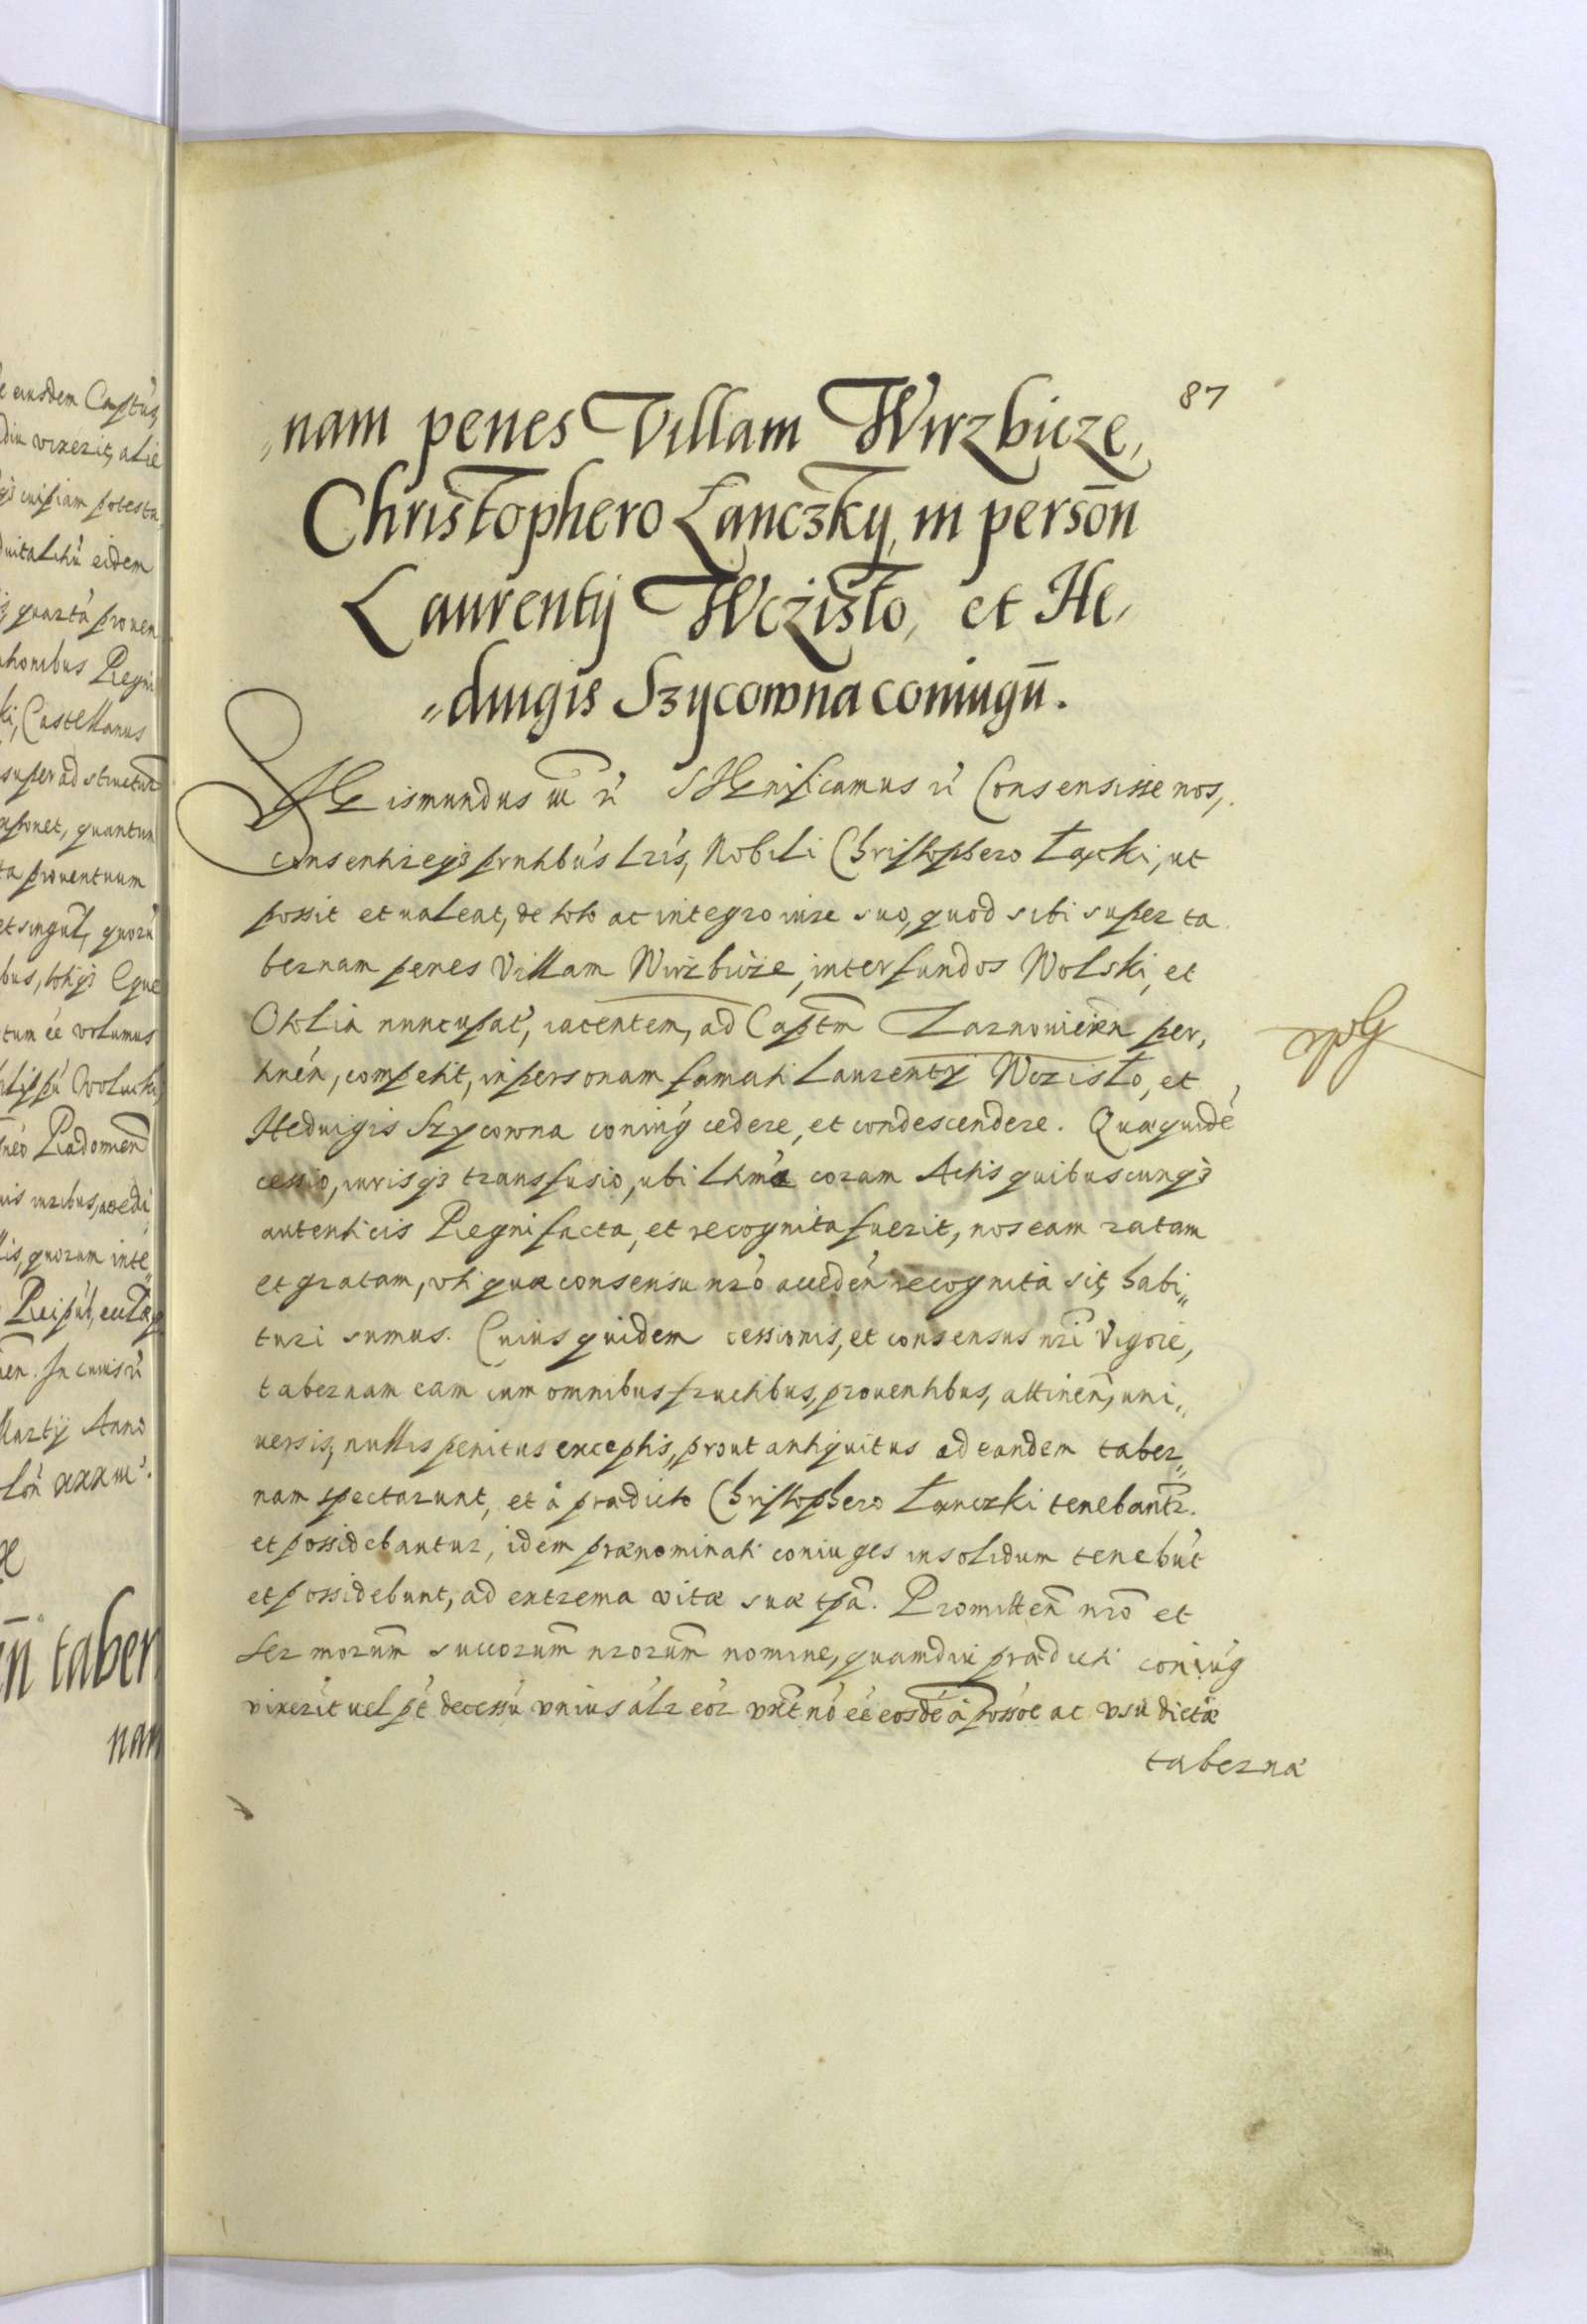 e eiusdem Captús,
diu vixerit, alie
qʒ cuipiam potesta
duitalitiú eidem
quarta prouen
ationibus Regni
ki, Castellanus
super ad structurā
aponet, quantum
ta prouentuum
et singul, quorú
bus, totiqʒ Eque
tum ée volumus
Philippú Wolucki
Radomień
uis iuribus, aredi
lis, quorum inte
Reipúb, eccla
ień. In cuius rí
Martij Anno
loń xxxiii
iñ taber
nam
87
nam penes Villam Wirzbicze,
Christophero Lanczky, in persoñ
Laurentij Wczisto, et He,
„duigis Szycowna coniugū.
SIGismundus iii rí SIGnificamus rí Consensisse nos,
consentireqʒ prntibús lrís, Nobili Christophero Łącki, ut
possit et ualeat, de toto ac integro iure suo, quod sibi super ta
bernam penes Villam Wirzbicze, inter fundos Wolski, et
Otolia nuncupat, iacentem, ad Captm̄ Zarnouieceñ per,
tinéń, competit, in personam famati Laurentij Wczisto, et
Heduigis Szycowna coniúg cedere, et condescendere. Quæquidé
cessio, iurisqʒ transfusio, ubi ltima coram Actis quibuscunqʒ
autenticis Regni facta, et recognita fuerit, nos eam ratam
et gratam, uti quæ consensu nró accedéń recognita sit, habi„
turi sumus. Cuius quidem cessionis, et consensus nrī Vigore,
tabernam eam cum omnibus fructibus, prouentibus, attineń, uni„
uersis, nullis penitus exceptis, prout antiquitus ad eandem taber„
nam spectarunt, et à prædicto Christophero Łanczki tenebantr̄.
et possidebantur, idem prænominati coniuges in solidum tenebút
et possidebunt, ad extrema vitæ suæ tpā. Promitteñ nrō et
Ser morum̄ succorum̄ nrorum̄ nomine, quamdiu prædicti coniúg
vixerít uel pt́ decessú vnius álr eór vxt̄ nó éé eosdé à possóe ac vsu dictæ
tabernæ